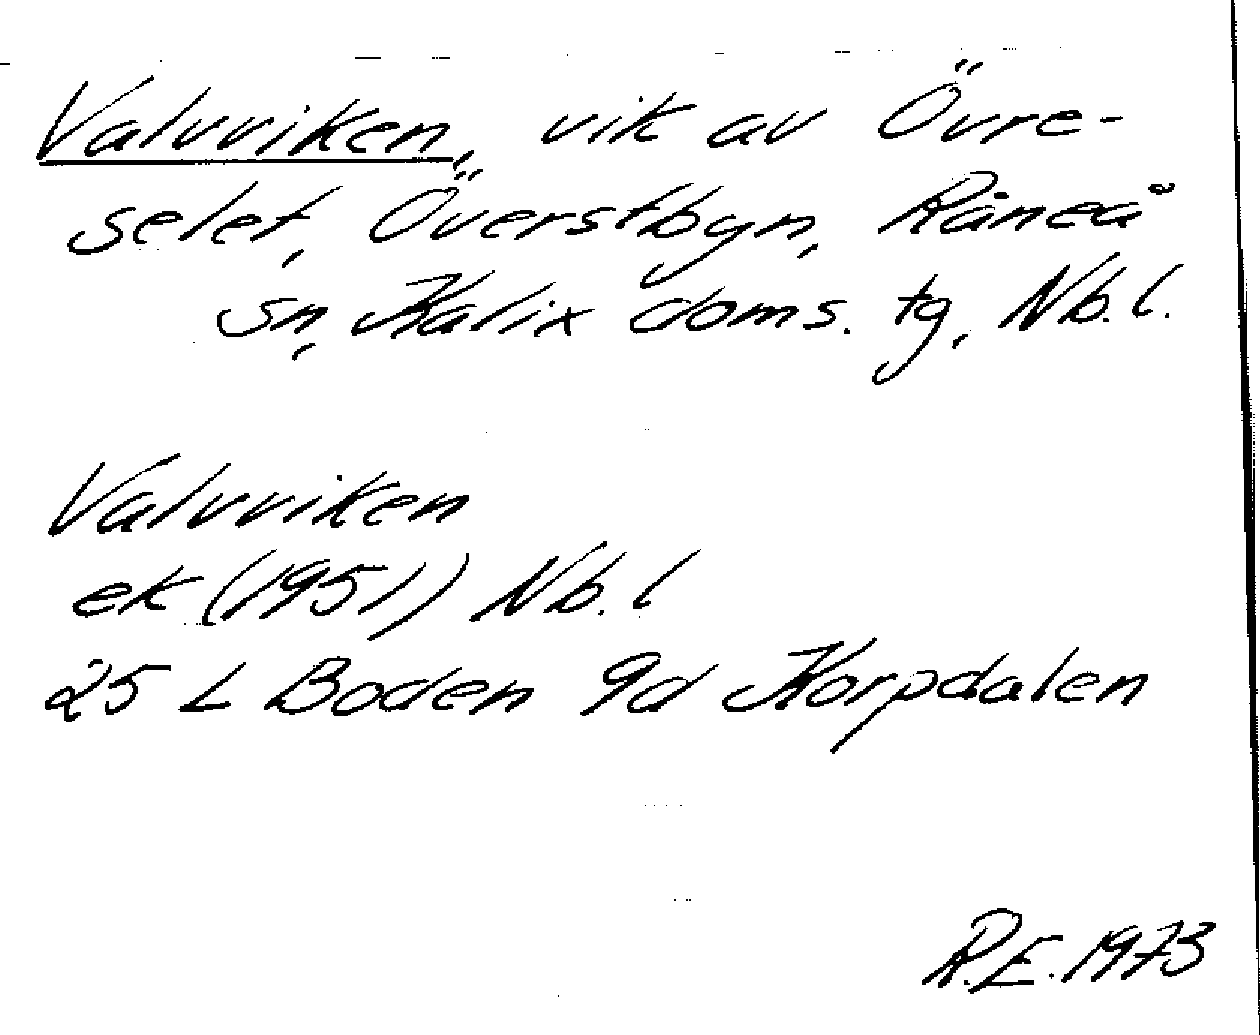 Valvviken, vik av Övre-
selet, Överstbyn, Råneå
sn, Kalix doms. tg, Nb. l.
Valvviken
ek (1951) Nb. l
25 L Boden 9d Korpdalen
R.E. 1973